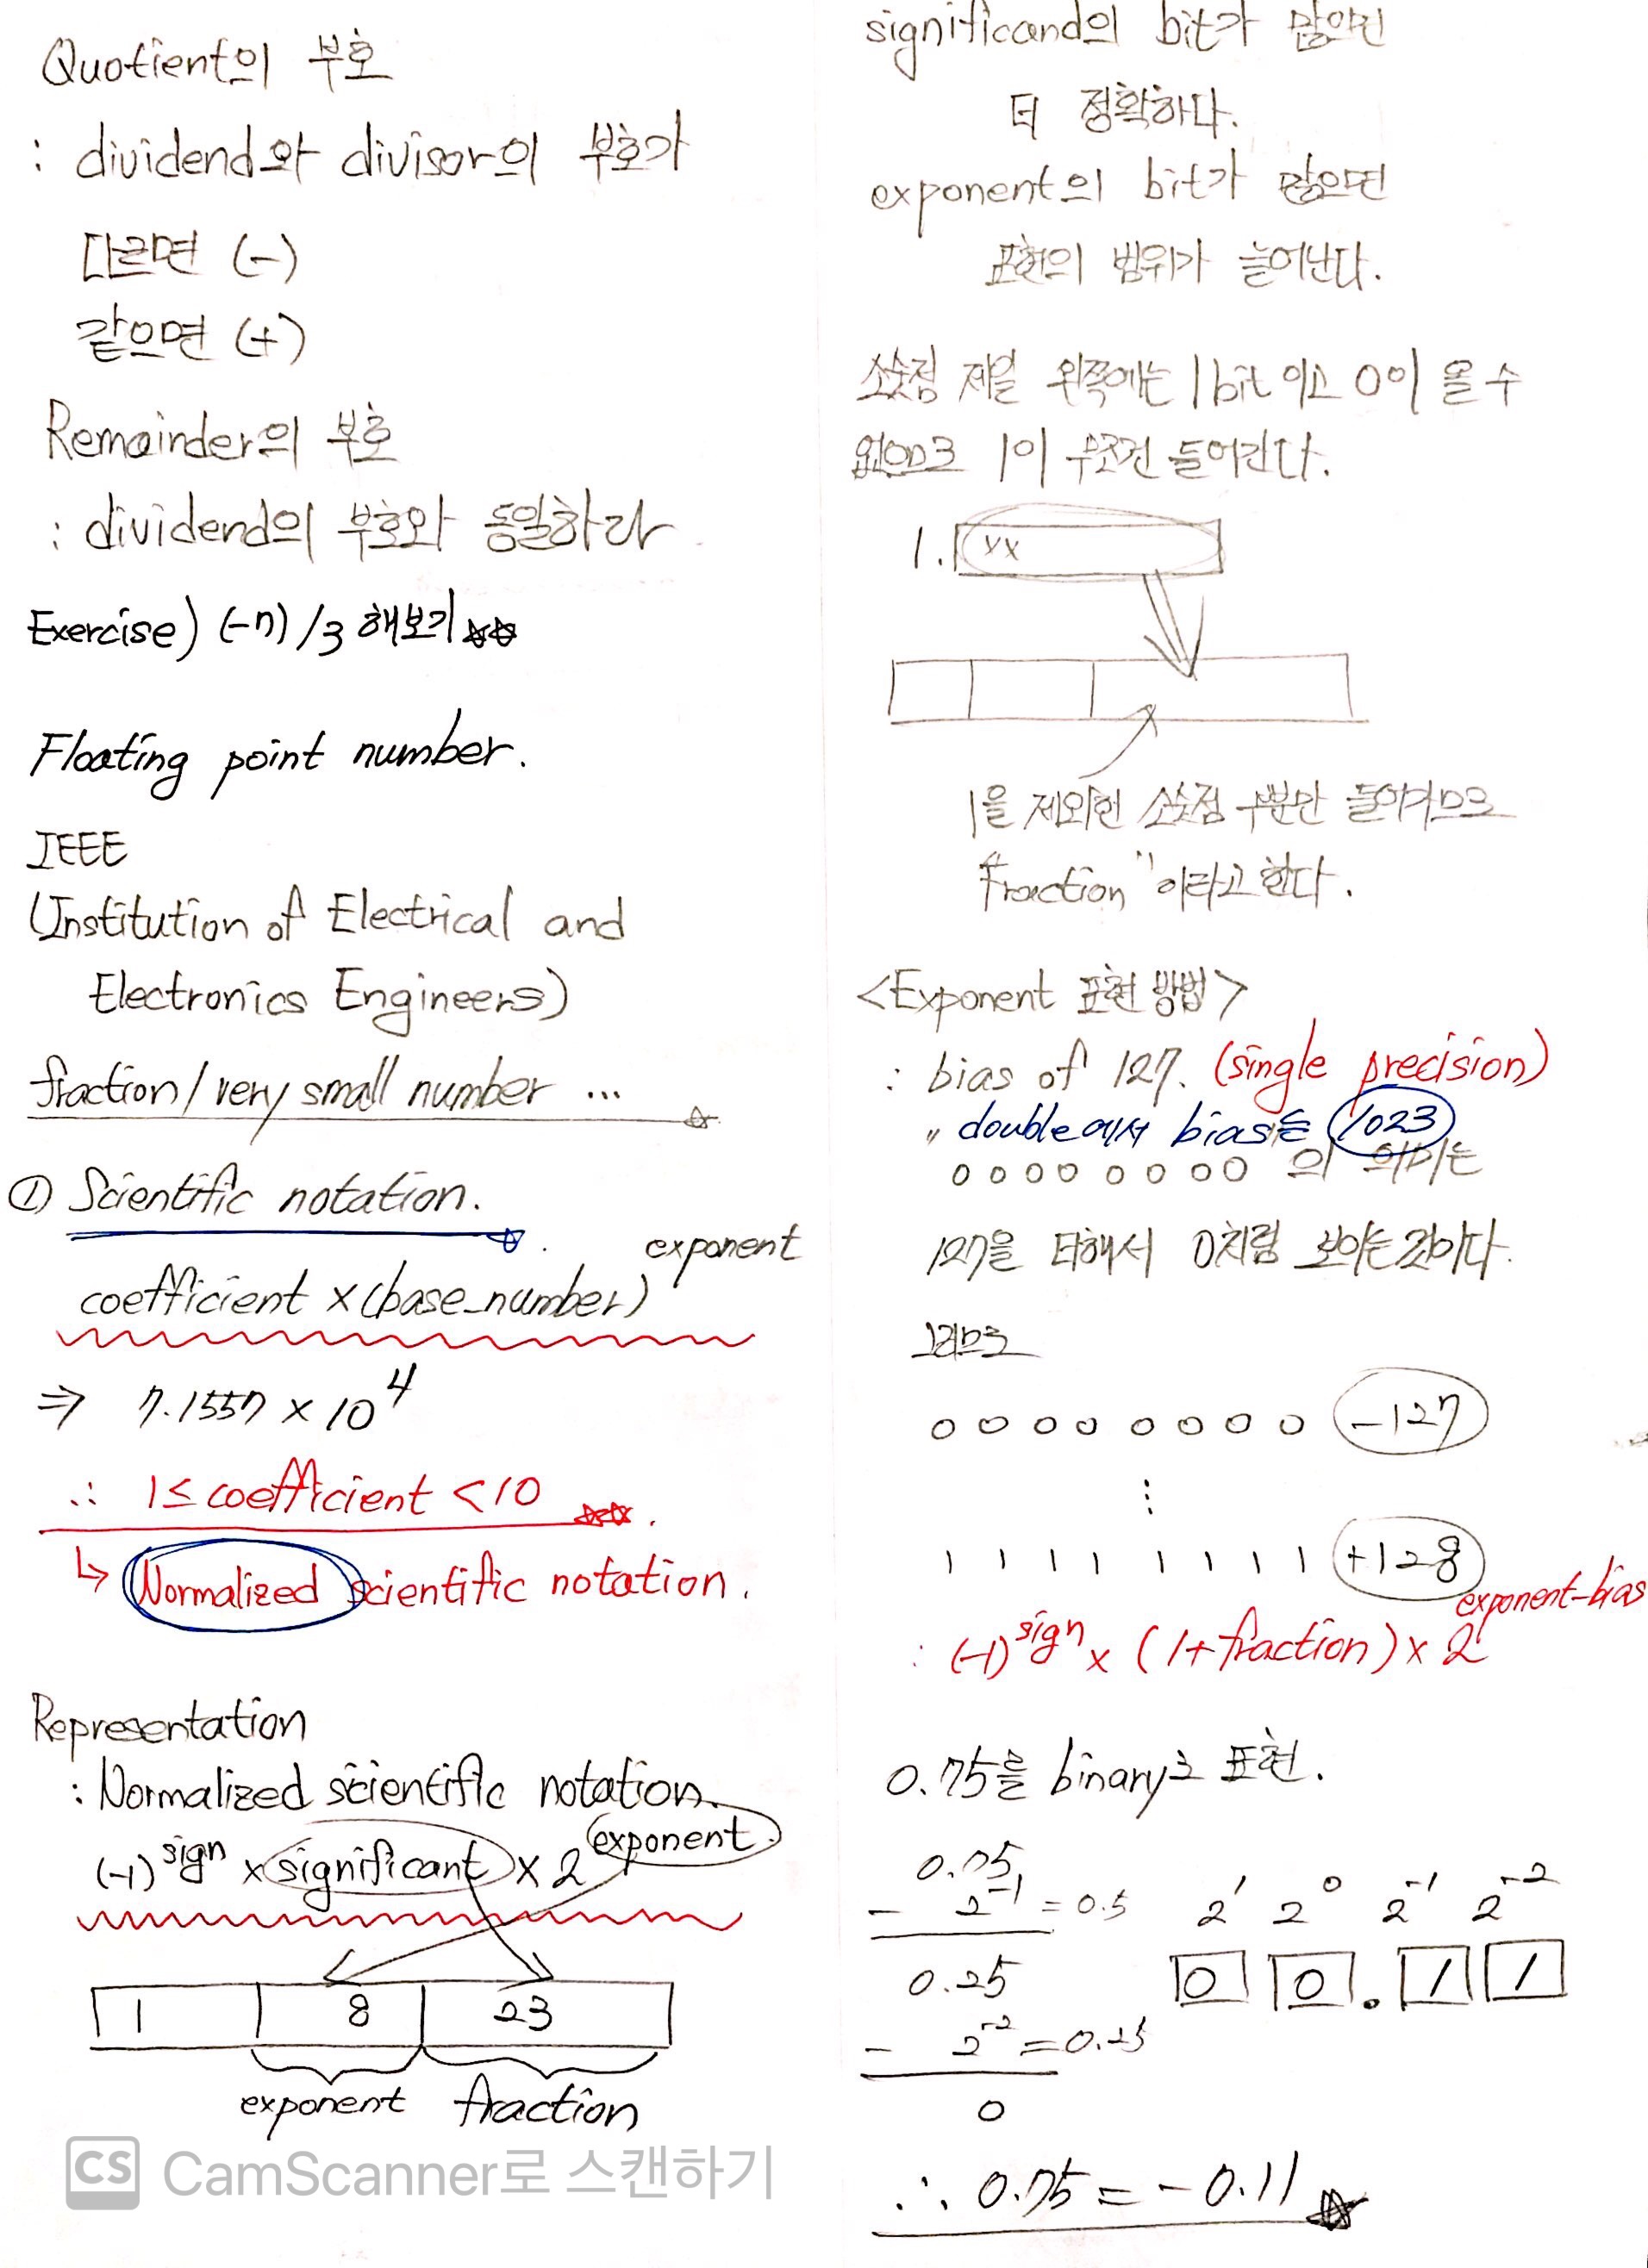 Quotient의 부호
: dividend와 divisor의 부호가
다르면 (-)
같으면 (+)
Remainder의 부호
: dividend의 부호와 동일하다
Exercise) (-7) /3 해보기 ☆☆
Floating point number.
IEEE
(Institution of Electrical and
Electronics Engineers)
fraction / very small number ...
① Scientific notation.
coefficient × (base_number) exponent
⇒ 7.1557 × 10^4
∴ 1 ≤ coefficient < 10 ☆☆.
↳ Normalized scientific notation.
Representation
: Normalized scientific notation.
(-1)^sign × significant × 2^exponent
1 8 23
exponent fraction
CS CamScanner로 스캔하기
significand의 bit가 많아면
더 정확하다.
exponent의 bit가 많으면
표현의 범위가 늘어난다.
소숫점 제일 왼쪽에는 1 bit 이고 0이 올 수
없으므로 1이 무조건 들어간다.
1. xx
1을 제외한 소숫점 부분만 들어가므로
"fraction"이라고 한다.
<Exponent 표현 방법>
: bias of 127. (single precision)
" double에서 bias는 1023
0 0 0 0 0 0 0 0 의 의미는
127을 더해서 0처럼 보이는것이다.
그러므로
0 0 0 0 0 0 0 0 -127
⋮
1 1 1 1 1 1 1 1 +128
: (-1)^sign × (1+fraction) × 2^exponent-bias
0.75를 binary로 표현.
0.75
- 2^-1 = 0.5
2^1 2^0 2^-1 2^-2
0.25
0 0 . 1 1
- 2^-2 = 0.25
0
∴ 0.75 = -0.11 ☆